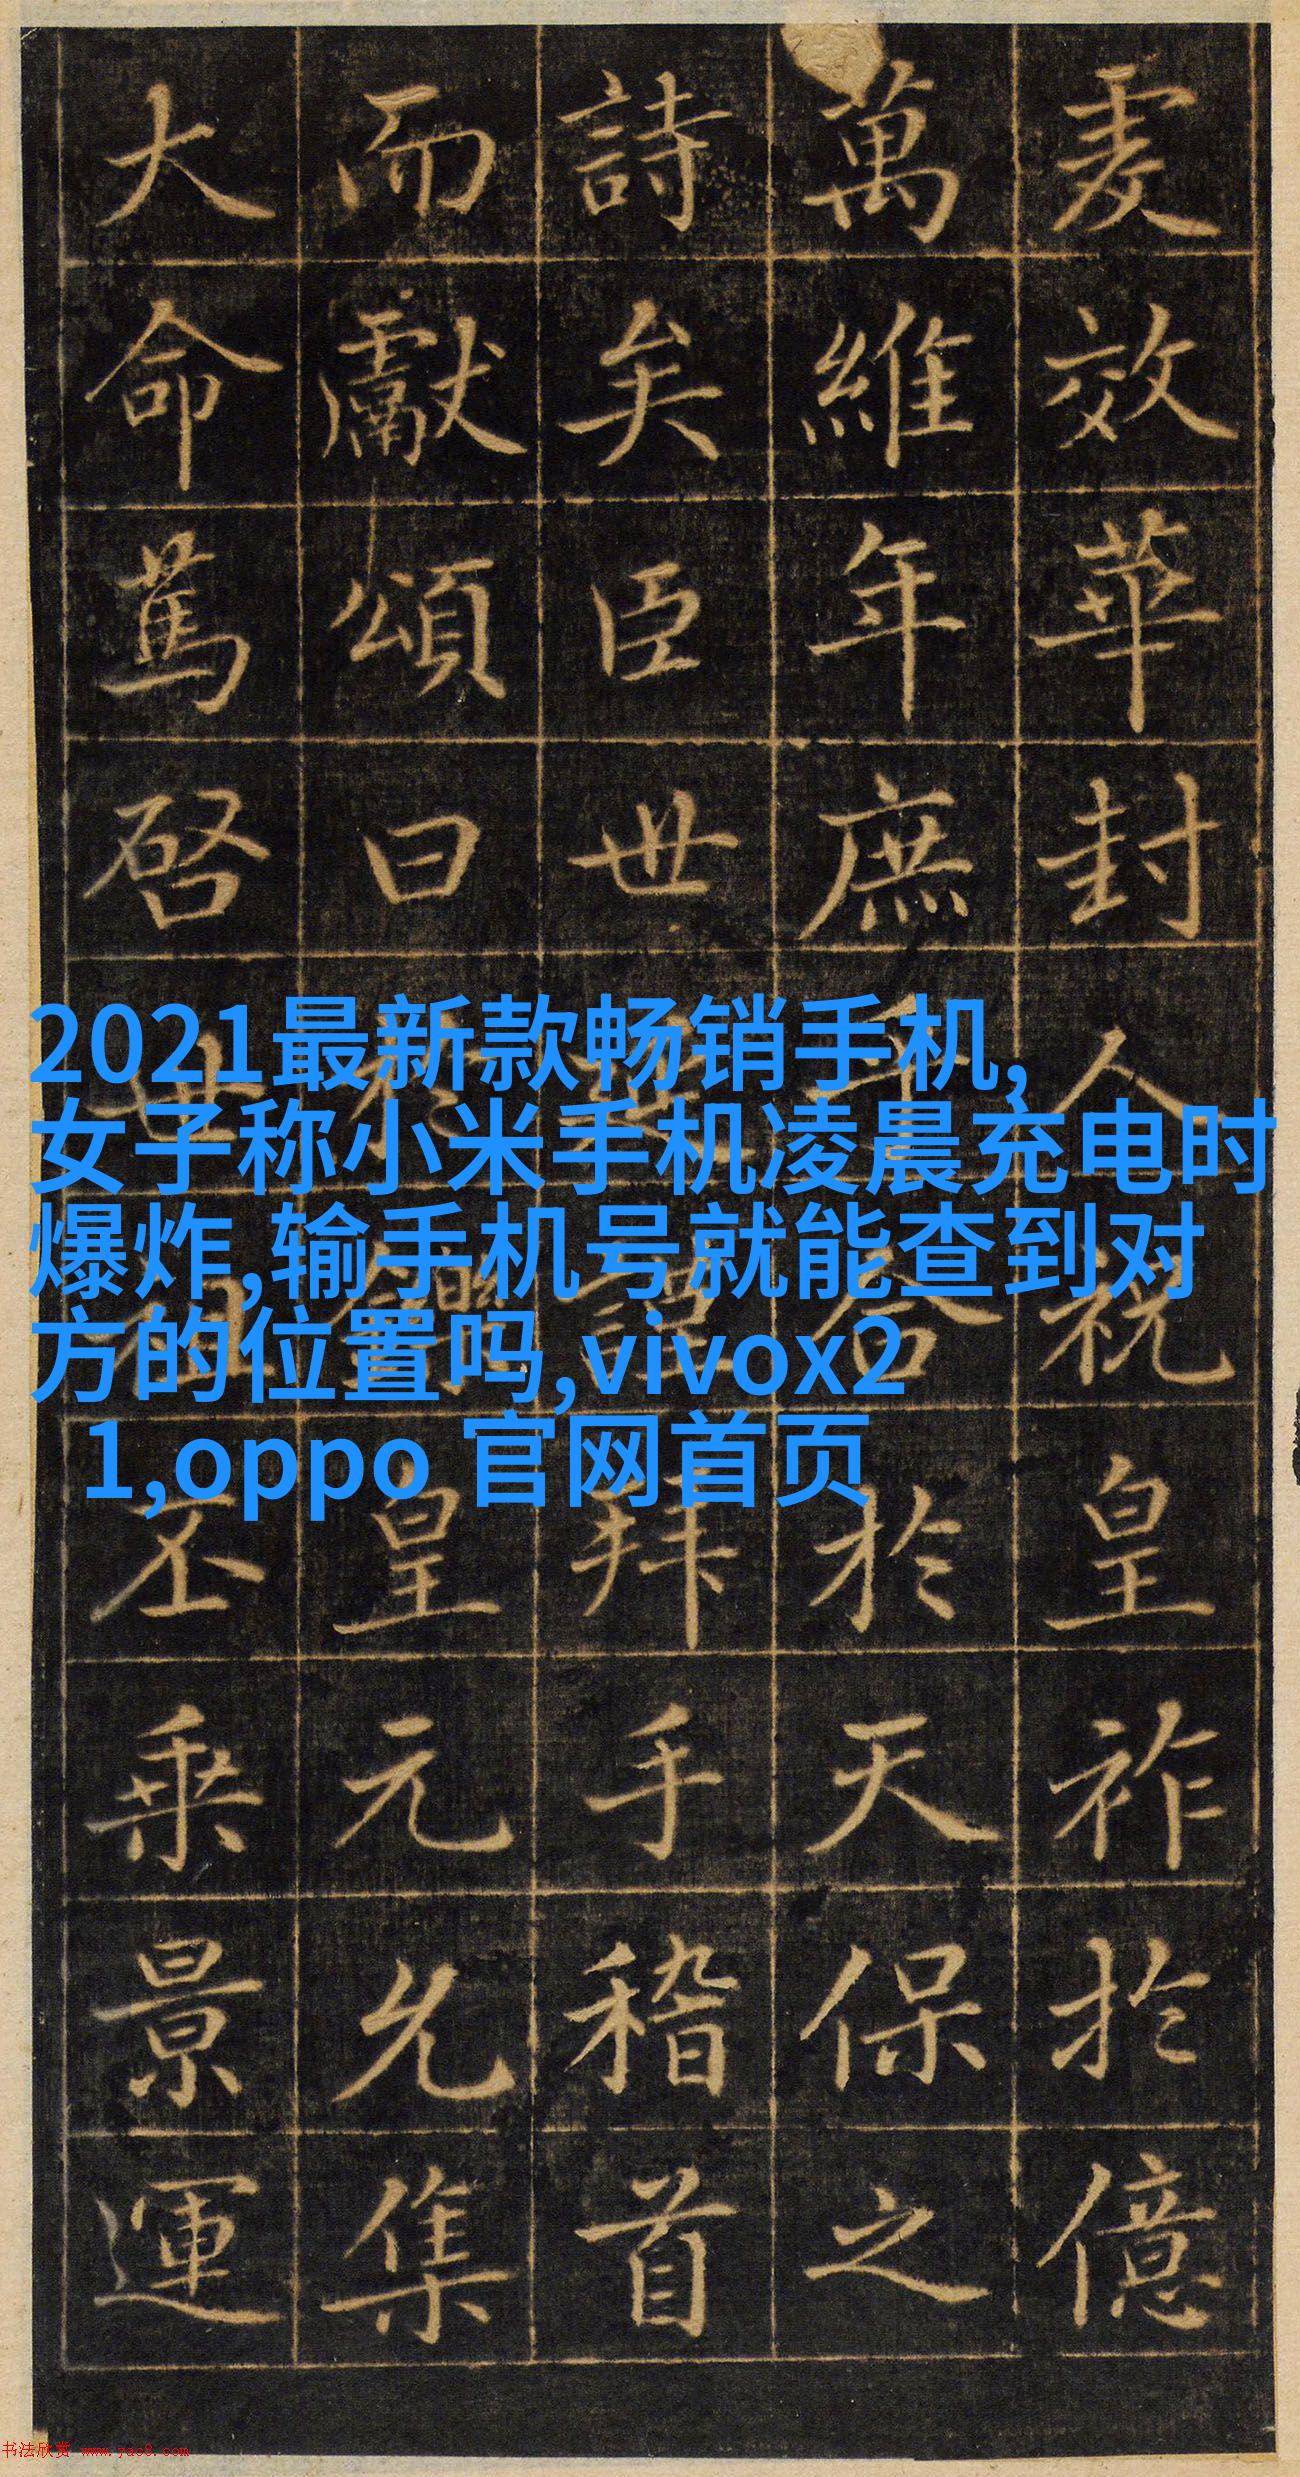 虔效華封人祝皇祚於億
萬維年庶合於天保之
詩矣臣世謹拜手稽首
而獻頌曰於鑠皇元允集
大命篤啓世祖丕乘景運
2021最新款畅销手机,
女子称小米手机凌晨充电时
爆炸,输手机号就能查到对
方的位置吗,vivox2
1,oppo 官网首页
书法欣赏 www.yac8.com